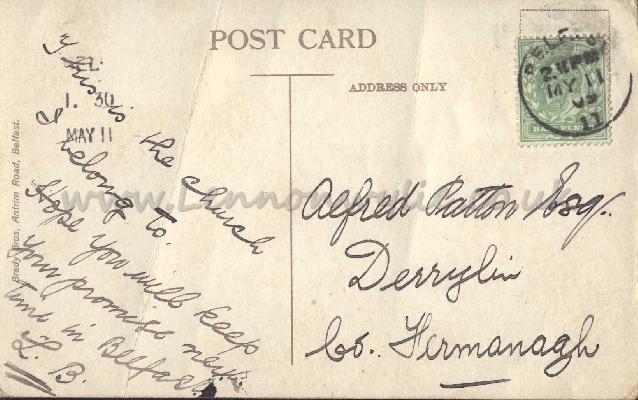 POST CARD
ADDRESS ONLY
BELFAST
2.15 PM
MY 11
09
11
HALFPENNY
EL
1. 30
MAY 11
This is the church
I belong to.
Hope you will keep
your promise next
time in Belfast.
L. B.
Alfred Patton Esq.
Derrylin
Co. Fermanagh
Brady Bros, Antrim Road, Belfast.